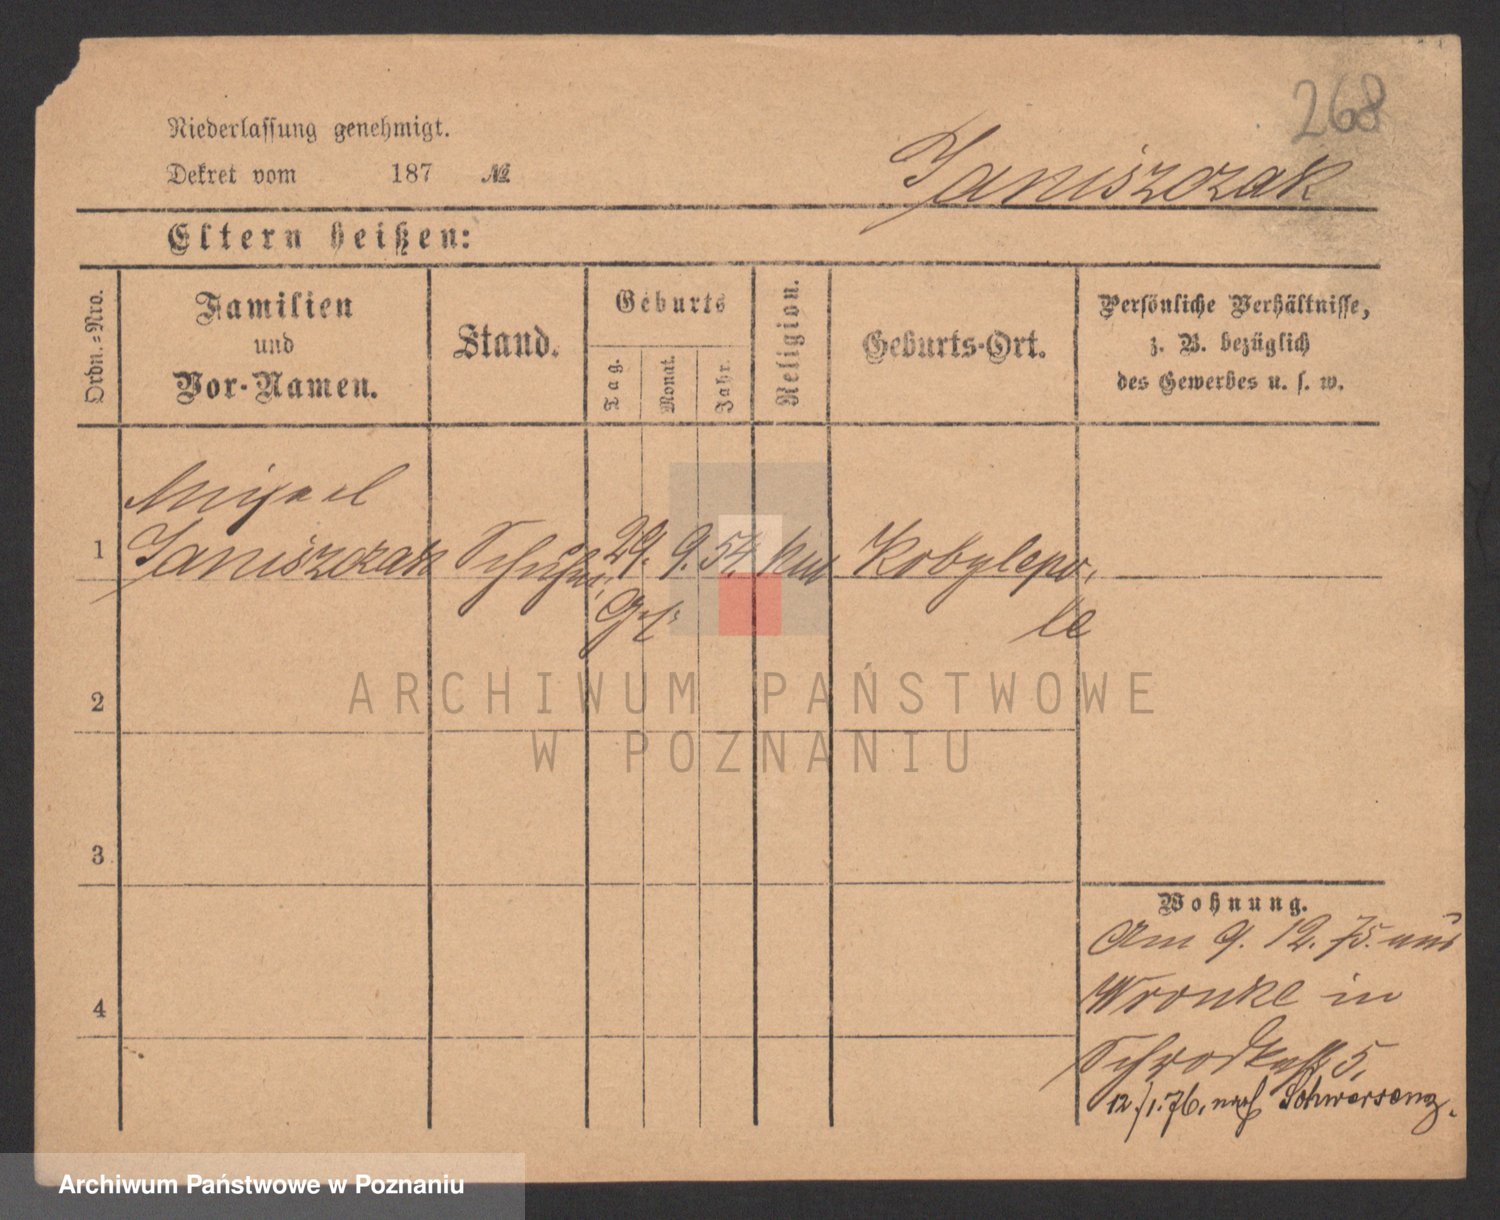 268
Niederlassung genehmigt.
Dekret vom 187 №
Janiszczak
Eltern heißen:
Ordn.=Nro.
Familien
und
Vor-Namen.
Stand.
Geburts
Tag.
Monat.
Jahr.
Religion.
Geburts-Ort.
Persönliche Verhältnisse,
z. B. bezüglich
des Gewerbes u. s. w.
Michael
1 Janiszczak Schuhm. 29. 9. 54. kath Kobylepo-
Ges. le
2
3
4
Wohnung.
Am 9. 12. 75. aus
Wronke in
Schrodka 5.
12./1.76. nach Schwersenz.
ARCHIWUM PAŃSTWOWE
W POZNANIU
Archiwum Państwowe w Poznaniu